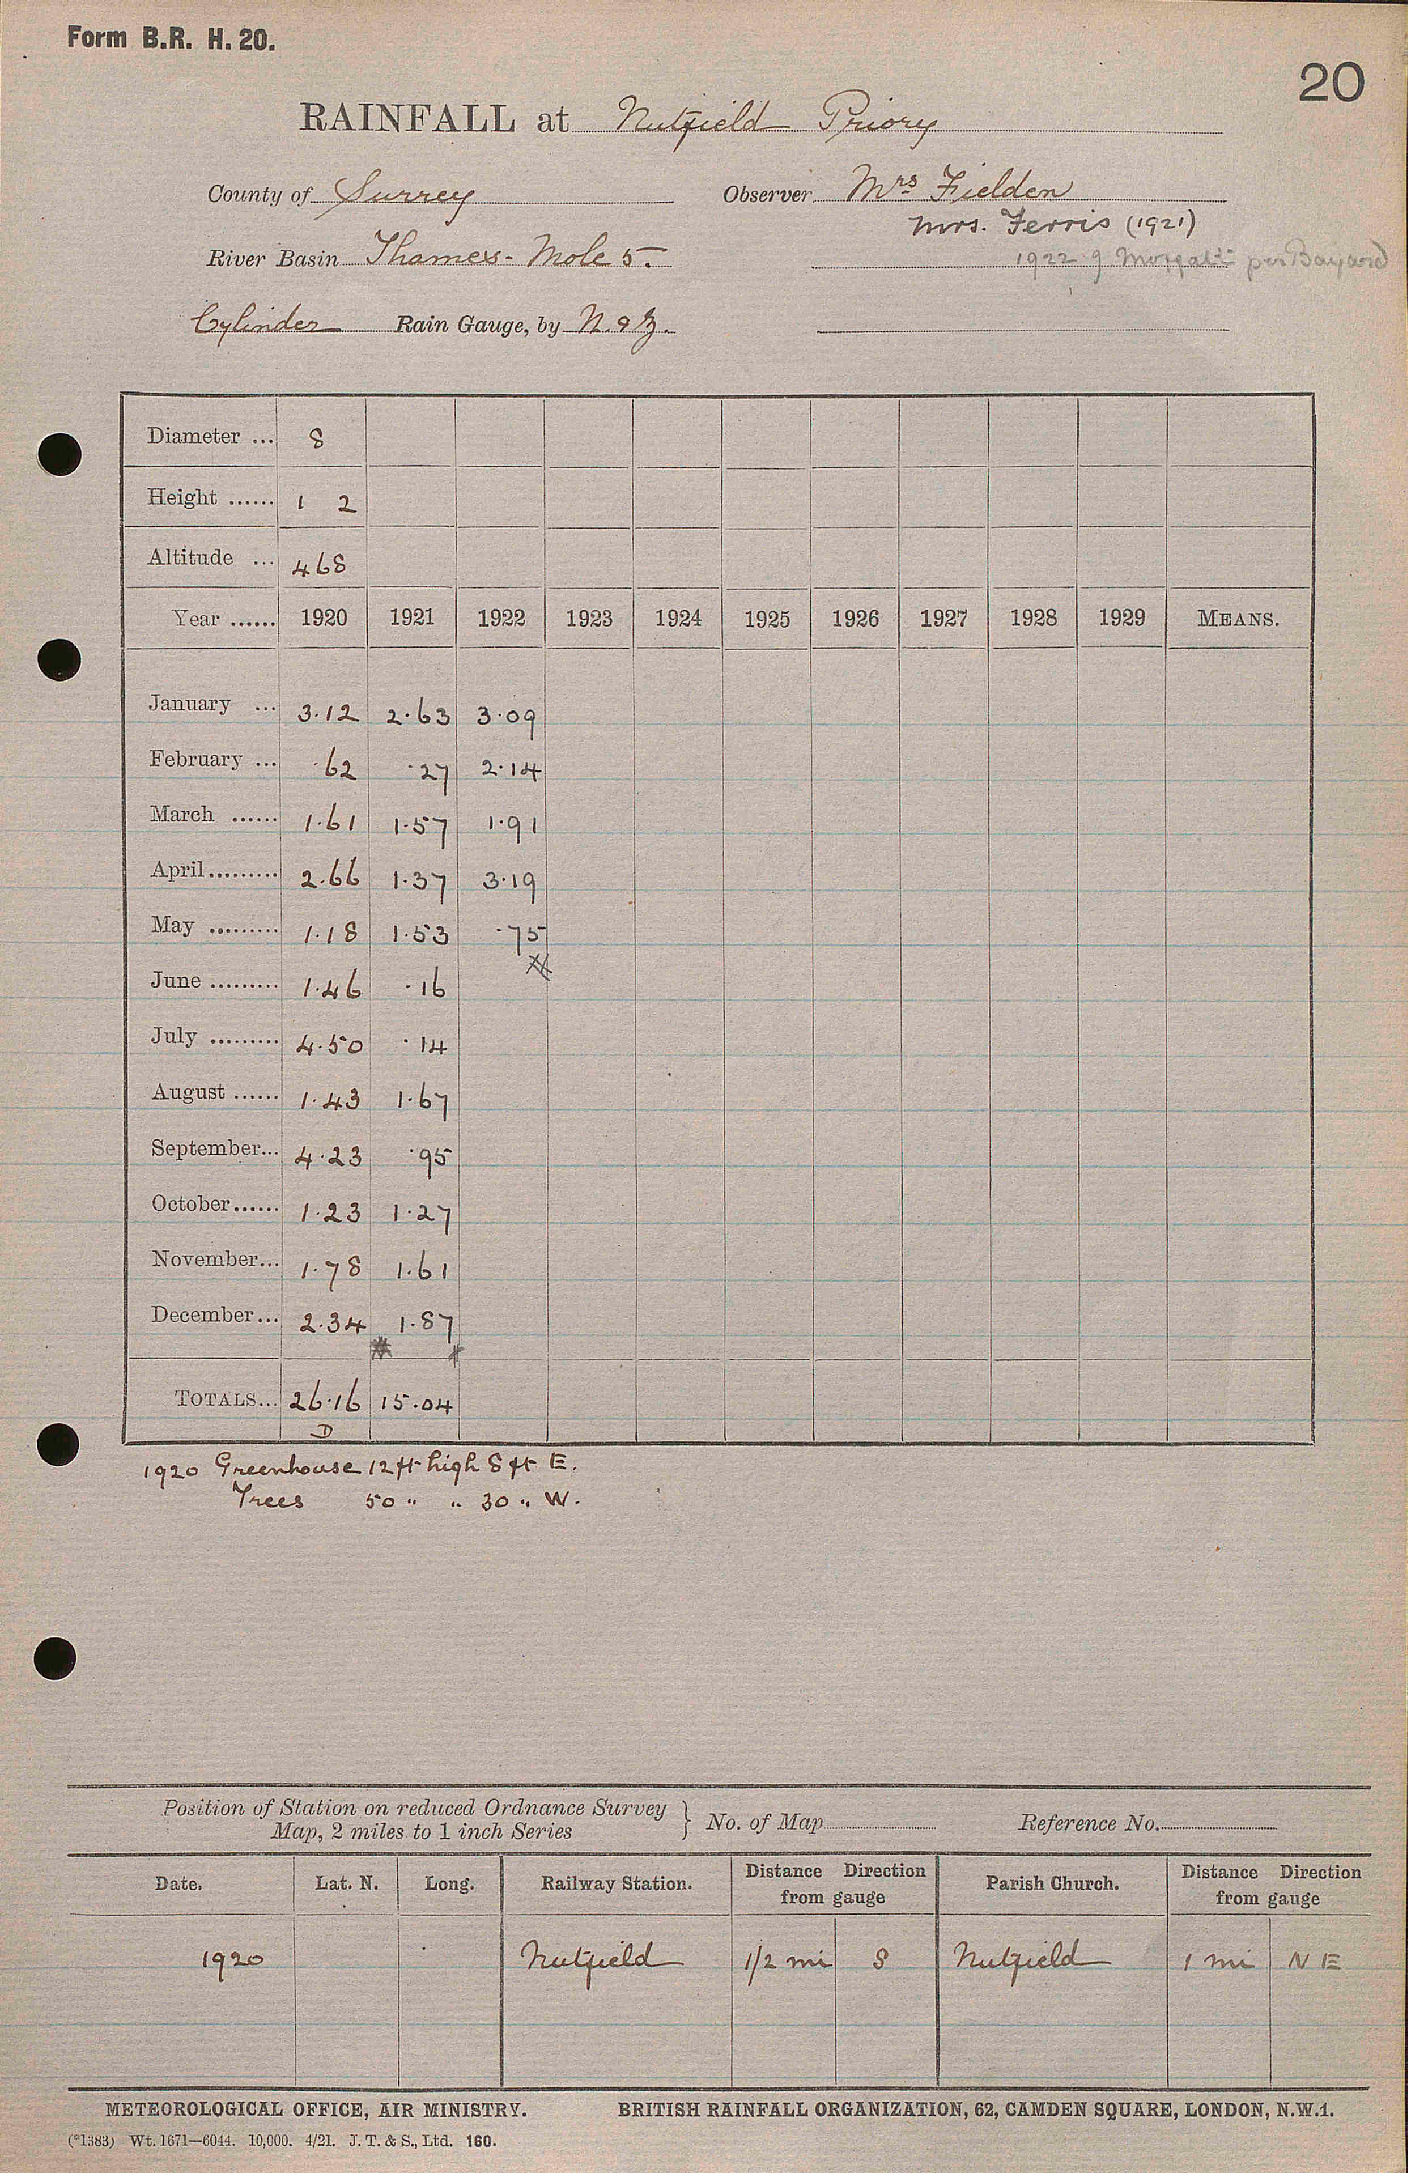 Form B.R. H. 20.
20
RAINFALL at Nutfield Priory
County of Surrey Observer Mrs Fielden
Mrs. Ferris (1921)
River Basin Thames - Mole 5. 1922 J Moffatt per Bayard
Cylinder Rain Gauge, by N. & Z.
Diameter ... 8
Height ...... 1 2
Altitude ... 468
Year ...... 1920 1921 1922 1923 1924 1925 1926 1927 1928 1929 MEANS.
January ... 3.12 2.63 3.09
February ... .62 .27 2.14
March ...... 1.61 1.57 1.91
April ......... 2.66 1.37 3.19
May ......... 1.18 1.53 .75
June ......... 1.46 .16
July ......... 4.50 .14
August ...... 1.43 1.67
September... 4.23 .95
October...... 1.23 1.27
November... 1.78 1.61
December... 2.34 1.87
TOTALS... 26.16 15.04
D
1920 Greenhouse 12 ft high 8 ft E.
Trees 50 " " 30 " W.
Position of Station on reduced Ordnance Survey } No. of Map Reference No.
Map, 2 miles to 1 inch Series
Date. Lat. N. Long. Railway Station. Distance Direction from gauge Parish Church. Distance Direction from gauge
1920 Nutfield 1/2 mi S Nutfield 1 mi N E
METEOROLOGICAL OFFICE, AIR MINISTRY. BRITISH RAINFALL ORGANIZATION, 62, CAMDEN SQUARE, LONDON, N.W.1.
(*1383) Wt. 1671—6044. 10,000. 4/21. J. T. & S., Ltd. 160.